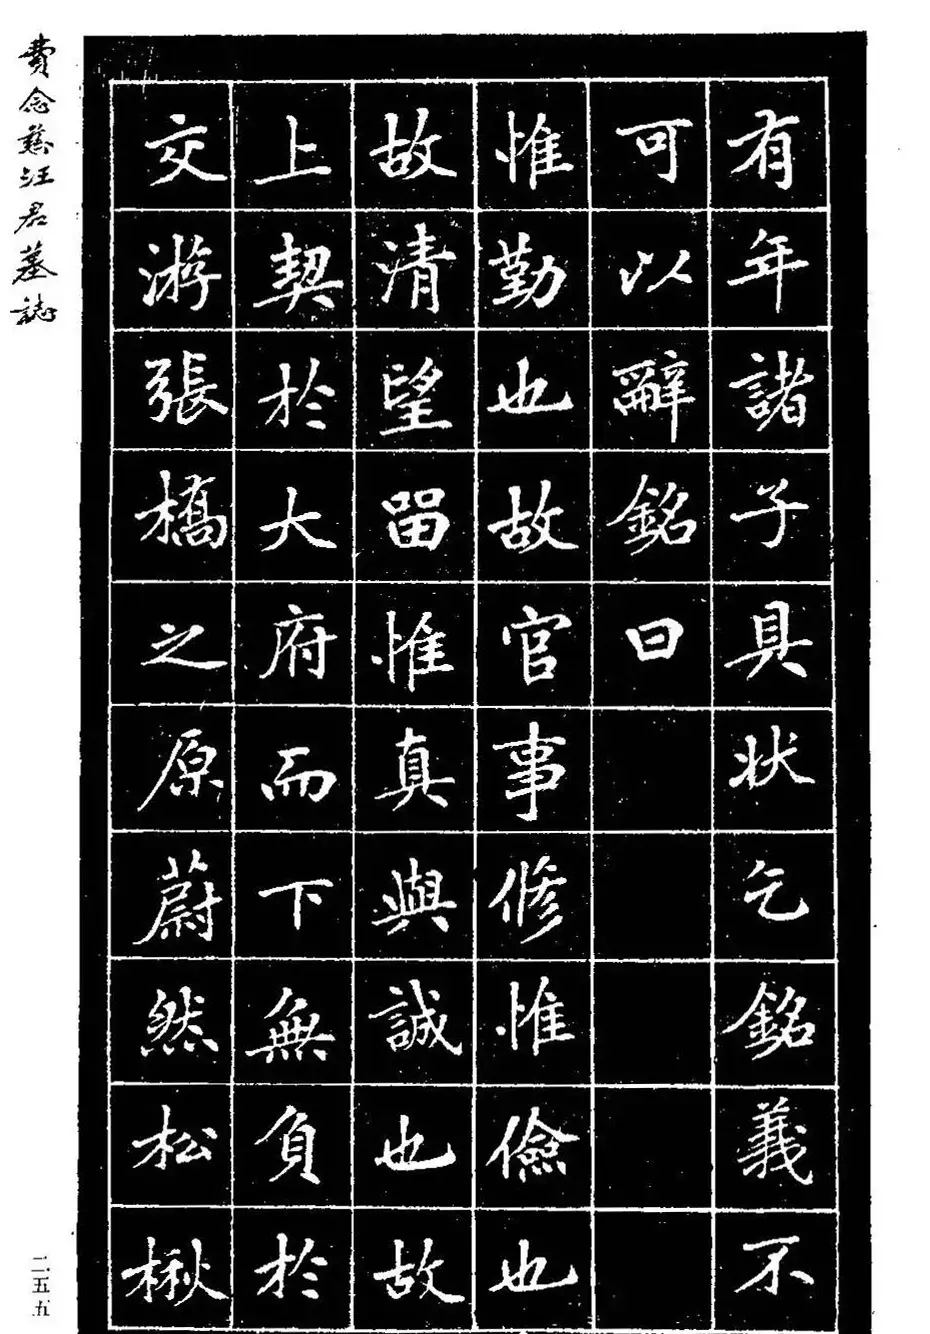 有年諸子具狀乞銘義不
可以辭銘曰
惟勤也故官事修惟儉也
故清望留惟真與誠也故
上契於大府而下無負於
交游張橋之原蔚然松楸
費念慈汪君墓誌
二五五